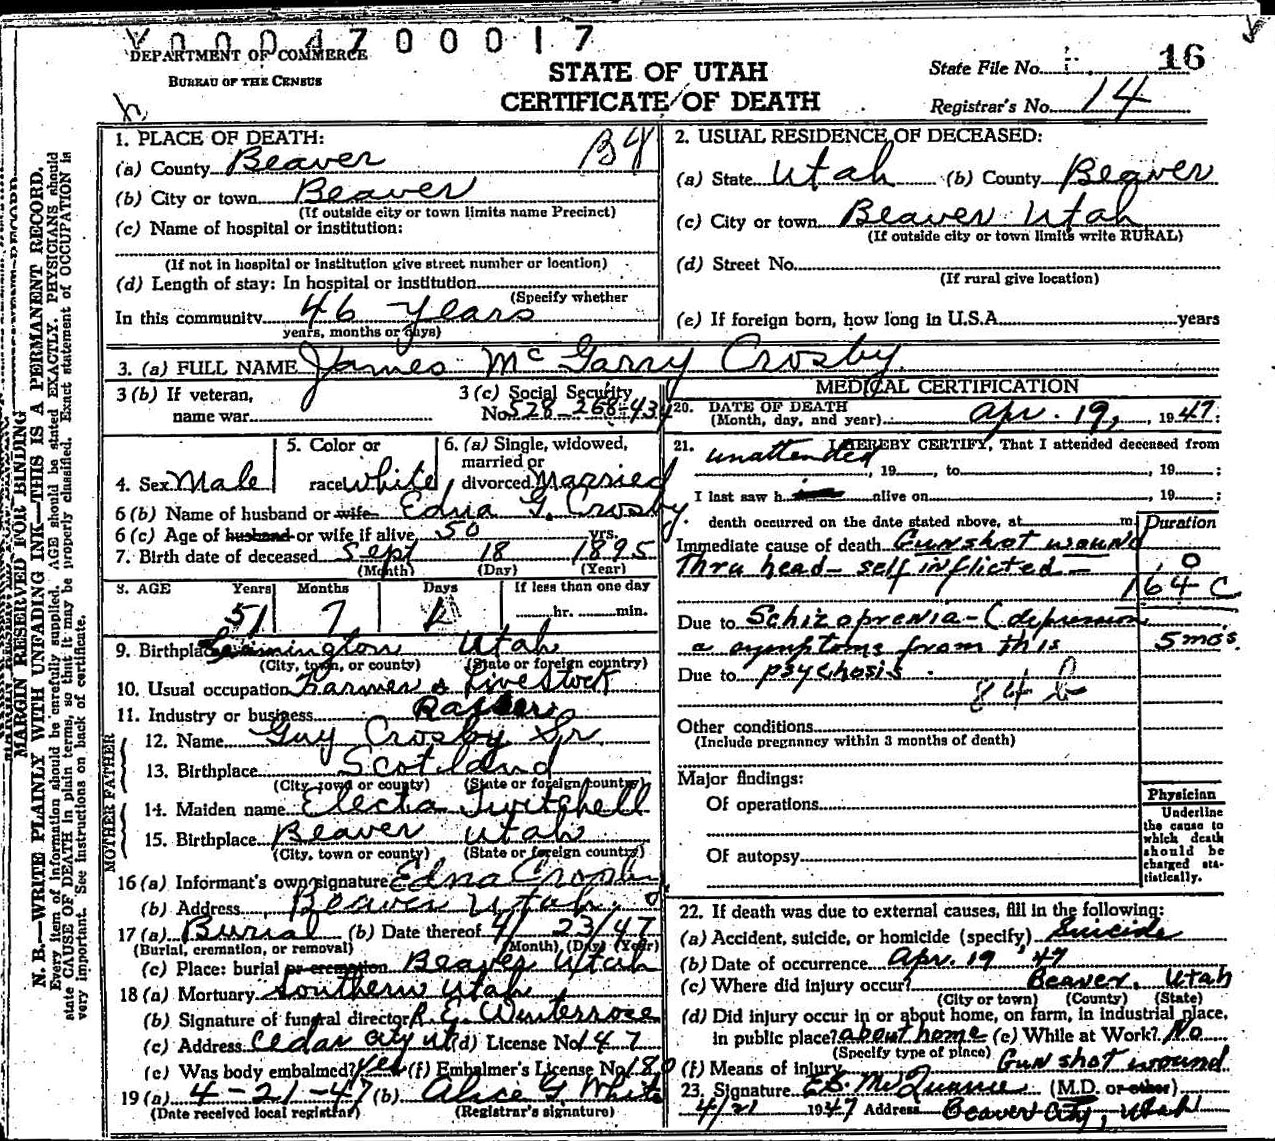 Y 0 0 0 4 7 0 0 0 1 7
DEPARTMENT OF COMMERCE
BUREAU OF THE CENSUS
STATE OF UTAH
CERTIFICATE OF DEATH
State File No. 16
Registrar's No. 14
MARGIN RESERVED FOR BINDING
N. B.—WRITE PLAINLY WITH UNFADING INK—THIS IS A PERMANENT RECORD.
Every item of information should be carefully supplied. AGE should be stated EXACTLY. PHYSICIANS should
state CAUSE OF DEATH in plain terms, so that it may be properly classified. Exact statement of OCCUPATION is
very important. See instructions on back of certificate.
1. PLACE OF DEATH: B4
(a) County Beaver
(b) City or town Beaver
(If outside city or town limits name Precinct)
(c) Name of hospital or institution:
(If not in hospital or institution give street number or location)
(d) Length of stay: In hospital or institution
(Specify whether
In this community 46 years
years, months or days)
2. USUAL RESIDENCE OF DECEASED:
(a) State Utah (b) County Beaver
(c) City or town Beaver Utah
(If outside city or town limits write RURAL)
(d) Street No.
(If rural give location)
(e) If foreign born, how long in U.S.A. years
3. (a) FULL NAME James Mc Garry Crosby
3 (b) If veteran,
name war
3 (c) Social Security
No. 528-268-434
4. Sex Male
5. Color or
race white
6. (a) Single, widowed,
married or
divorced Married
6 (b) Name of husband or wife Edna G. Crosby
6 (c) Age of husband or wife if alive 50 yrs.
7. Birth date of deceased Sept 18 1895
(Month) (Day) (Year)
8. AGE Years Months Days If less than one day
51 7 hr. min.
9. Birthplace Utah
(City, town, or county) (State or foreign country)
10. Usual occupation Farmer & Livestock
11. Industry or business Raiser
FATHER
12. Name Guy Crosby Sr
13. Birthplace Scotland
(City, town or county) (State or foreign country)
MOTHER
14. Maiden name Electa Twitchell
15. Birthplace Beaver Utah
(City, town or county) (State or foreign country)
16 (a) Informant's own signature Edna Crosby
(b) Address Beaver Utah
17 (a) Burial (b) Date thereof 4/23/47
(Burial, cremation, or removal) (Month) (Day) (Year)
(c) Place: burial or cremation Beaver Utah
18 (a) Mortuary Southern Utah
(b) Signature of funeral director R. E. Winterrose
(c) Address Cedar City Ut (d) License No. 147
(e) Was body embalmed? Yes (f) Embalmer's License No. 180
19 (a) 4-21-47 (b) Alice G White
(Date received local registrar) (Registrar's signature)
MEDICAL CERTIFICATION
20. DATE OF DEATH
(Month, day, and year) Apr. 19, 1947.
21. I HEREBY CERTIFY, That I attended deceased from
unattended, 19 , to , 19 ;
I last saw h alive on , 19 ;
death occurred on the date stated above, at m. Duration
Immediate cause of death Gunshot wound
Thru head - self inflicted - 0
164 C
Due to Schizoprenia - (depression
a symptoms from this 5 mo's.
Due to psychosis.
84 b
Other conditions
(Include pregnancy within 3 months of death)
Major findings:
Of operations
Of autopsy
Physician
Underline
the cause to
which death
should be
charged sta-
tistically.
22. If death was due to external causes, fill in the following:
(a) Accident, suicide, or homicide (specify) Suicide
(b) Date of occurrence Apr. 19 '47
(c) Where did injury occur? Beaver, Utah
(City or town) (County) (State)
(d) Did injury occur in or about home, on farm, in industrial place,
in public place? about home (e) While at Work? No
(Specify type of place)
(f) Means of injury Gun shot wound
23. Signature (M.D. or other)
4/21 1947 Address Beaver City, Utah